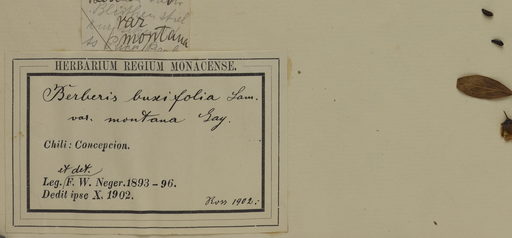 var
montana
HERBARIUM REGIUM MONACENSE.
Berberis buxifolia Lam.
var. montana Gay.
Chili: Concepcion.
et det.
Leg. F. W. Neger. 1893–96.
Dedit ipse X. 1902.
Ross 1902.